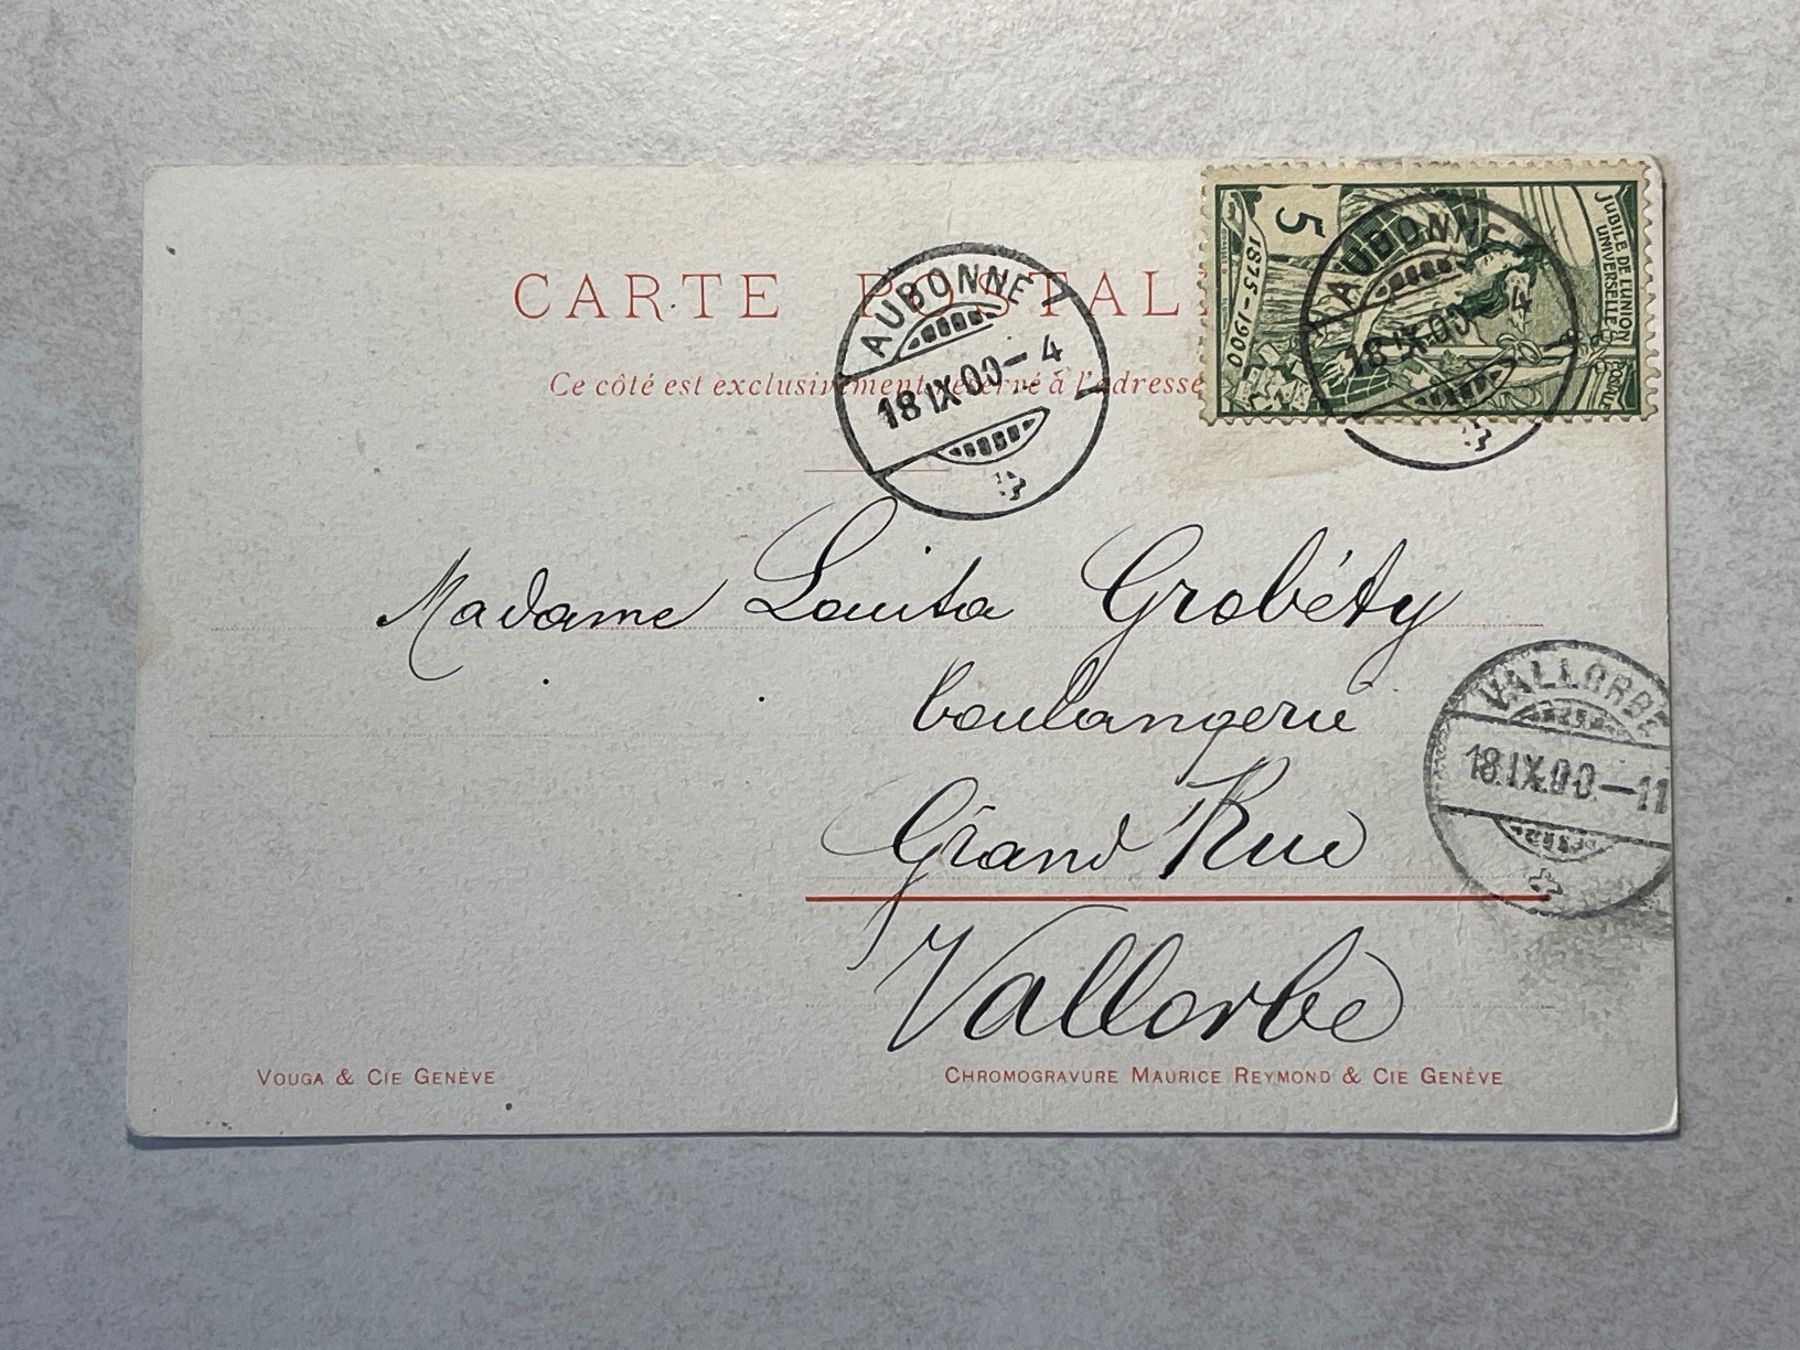 CARTE POSTALE
Ce côté est exclusivement réservé à l'adresse
AUBONNE
18.IX.00-4
5
1875-1900
JUBILÉ DE L'UNION
UNIVERSELLE
POSTALE
AUBONNE
18.IX.00-4
Madame Louisa Grobéty
boulangerie
Grand Rue
Vallorbe
VALLORBE
18.IX.00.-11
VOUGA & CIE GENÈVE
CHROMOGRAVURE MAURICE REYMOND & CIE GENÈVE